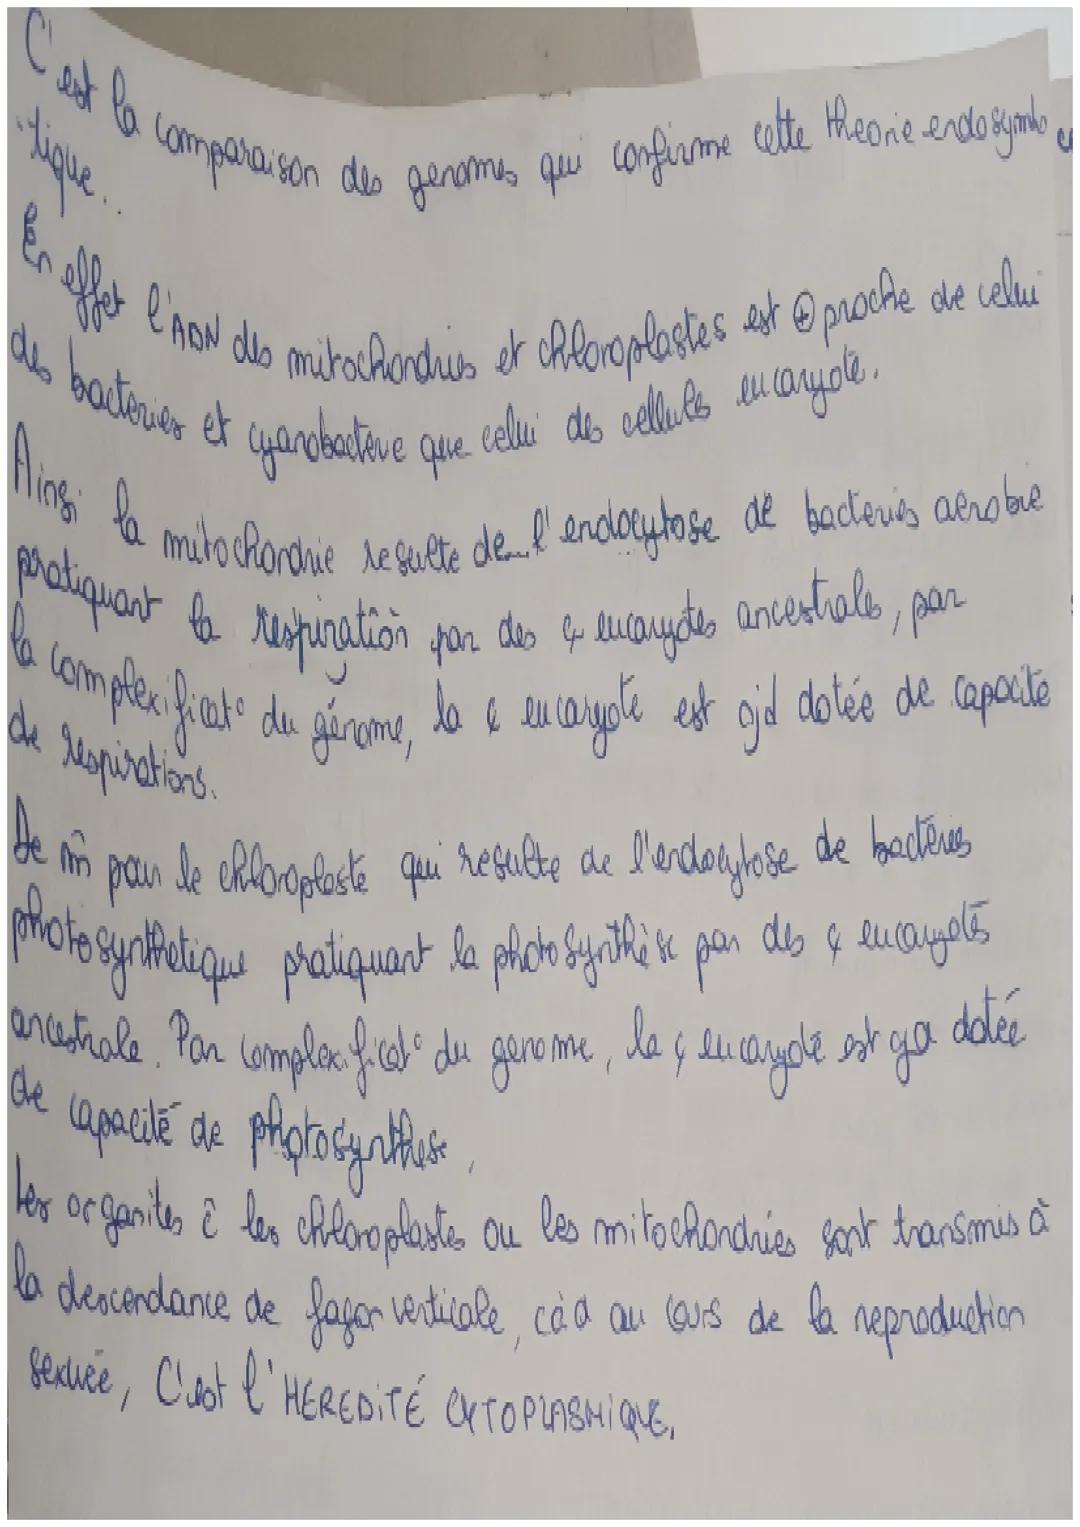 C'est la comparaison des genomes qui confirme cette theorie endosymbo
tique.
En effet l'ADN des mitochondries et chloroplastes est ⊕ proche de celui
des bacteries et cyanobactérie que celui des cellules eucaryote.
Ainsi la mitochondrie resulte de l'endocytose de bacteries aerobie
pratiquant la respiration par des ¢ eucaryotes ancestrales, par
la complexificat° du génome, la ¢ eucaryote est ojd dotée de capacité
de respirations.
De m̂ pour le chloroplaste qui resulte de l'endocytose de bactéries
photosynthetique pratiquant la photosynthèse par des ¢ eucaryotes
ancestrale. Par complexificat° du genome, la ¢ eucaryote est dotée
de capacité de photosynthese,
Les organites ĉ les chloroplastes ou les mitochondries sont transmis à
la descendance de façon verticale, càd au cours de la reproduction
sexuée, C'est l'HEREDITÉ CYTOPLASMIQUE.